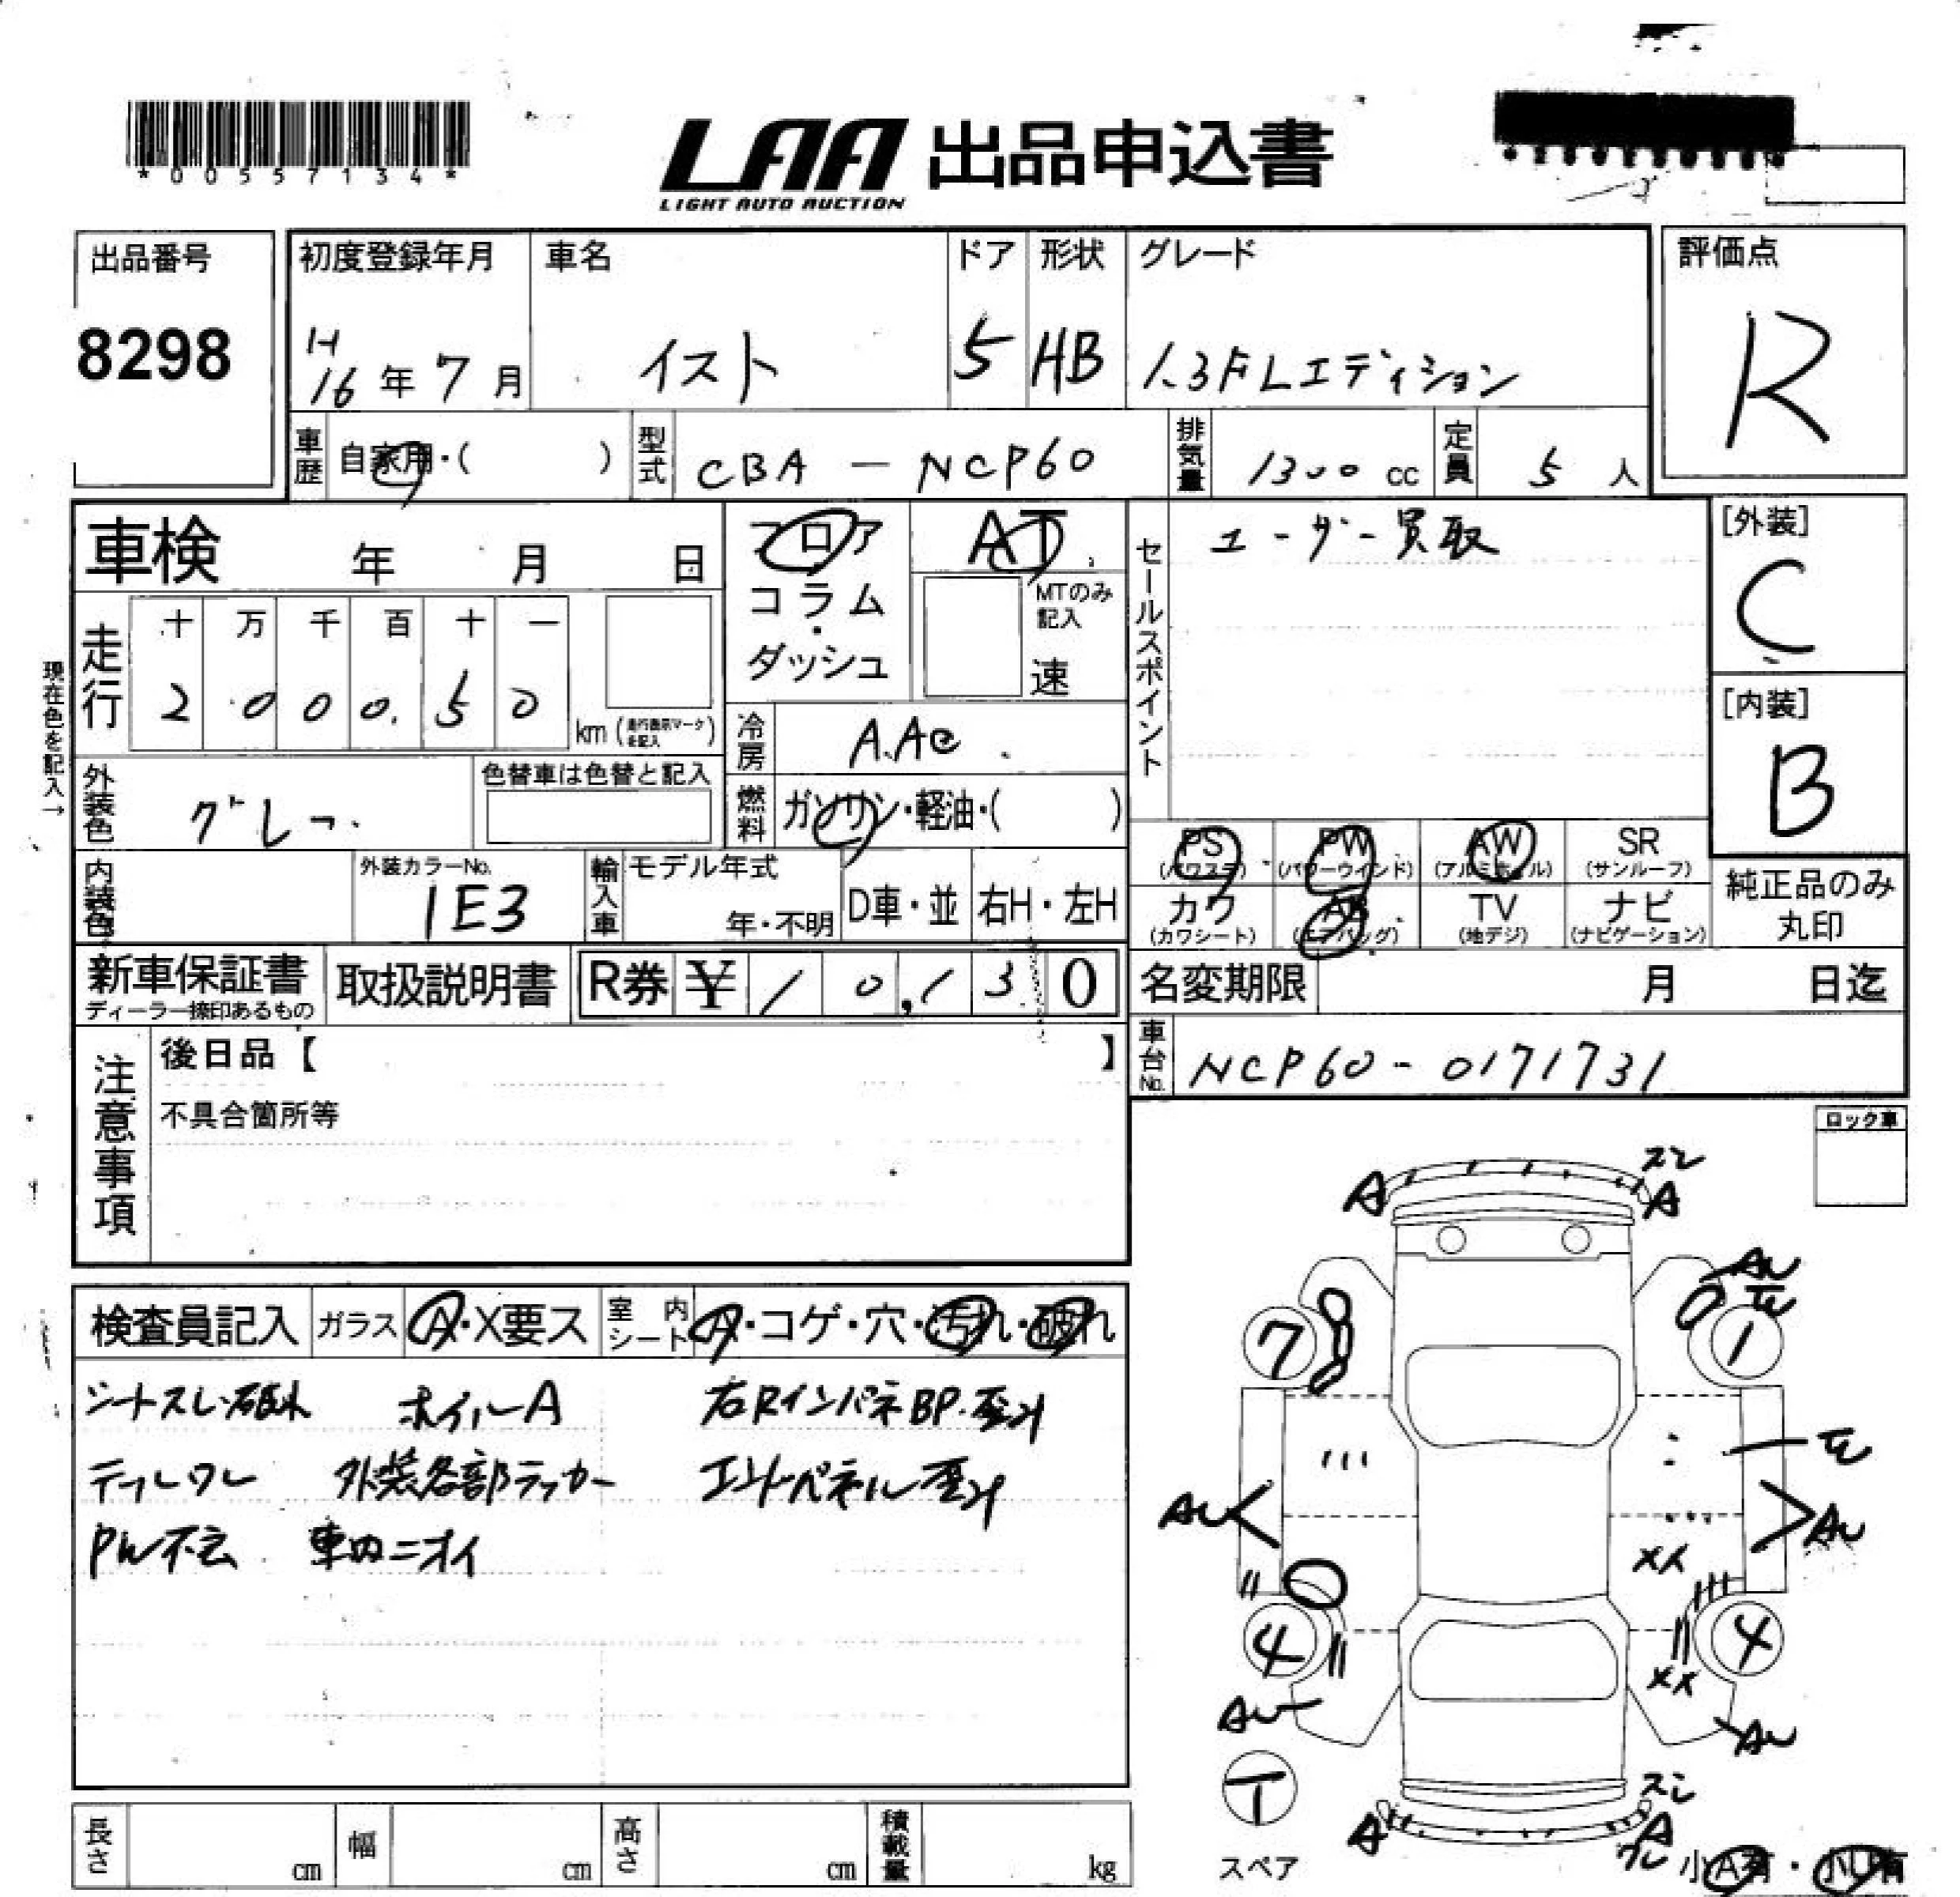 *00557134*
LAA 出品申込書
LIGHT AUTO AUCTION
出品番号
8298
初度登録年月
H
16年7月
車名
イスト
ドア
5
形状
HB
グレード
1.3F Lエディション
評価点
R
車歴 自家用・( )
型式 CBA - NCP60
排気量 1300 cc
定員 5 人
車検 年 月 日
フロア
コラム
・
ダッシュ
AT
MTのみ
記入
速
セールスポイント
ユーザー買取
[外装]
C
[内装]
B
現在色を記入→
走行
十 万 千 百 十 一
2 0 0 0. 5 0
km (走行表示マークを記入)
冷房 A.Ac
外装色 グレー
色替車は色替と記入
燃料 ガソリン・軽油・( )
PS (パワステ)
PW (パワーウインド)
AW (アルミホイル)
SR (サンルーフ)
カワ (カワシート)
AB (エアバッグ)
TV (地デジ)
ナビ (ナビゲーション)
純正品のみ
丸印
内装色
外装カラーNo.
1E3
輸入車
モデル年式
年・不明
D車・並
右H・左H
新車保証書
ディーラー捺印あるもの
取扱説明書
R券 ¥ 1 0,1 3 0
名変期限 月 日迄
車台No. NCP60-0171731
注意事項
後日品【 】
不具合箇所等
ロック車
検査員記入
ガラス A・X要ス
室内シート A・コゲ・穴・汚れ・破れ
シートスレ・破れ ホイルA 右RインパネBP・歪み
外装各部ラッカー エンドパネル歪み
PW不云 車内ニオイ
A
A
AU
7
1
AU
AU
4
4
AU
AU
XX
T
スペア
A
A
スレ
ワレ
小A有・小U有
長さ cm
幅 cm
高さ cm
積載量 kg